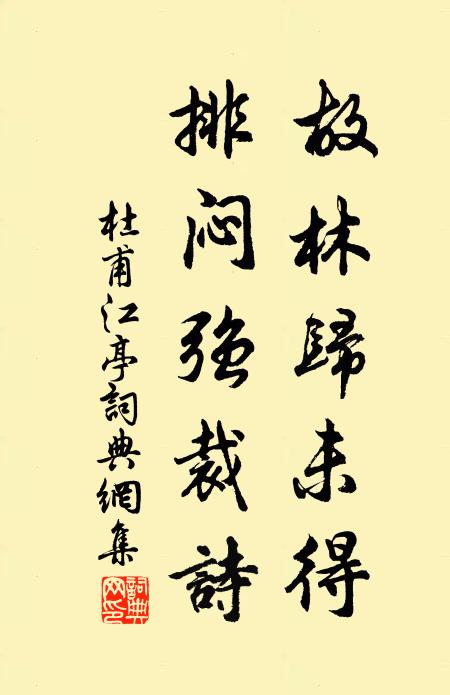 故林歸未得
排闷強裁詩
杜甫江亭詞典網集
詞典